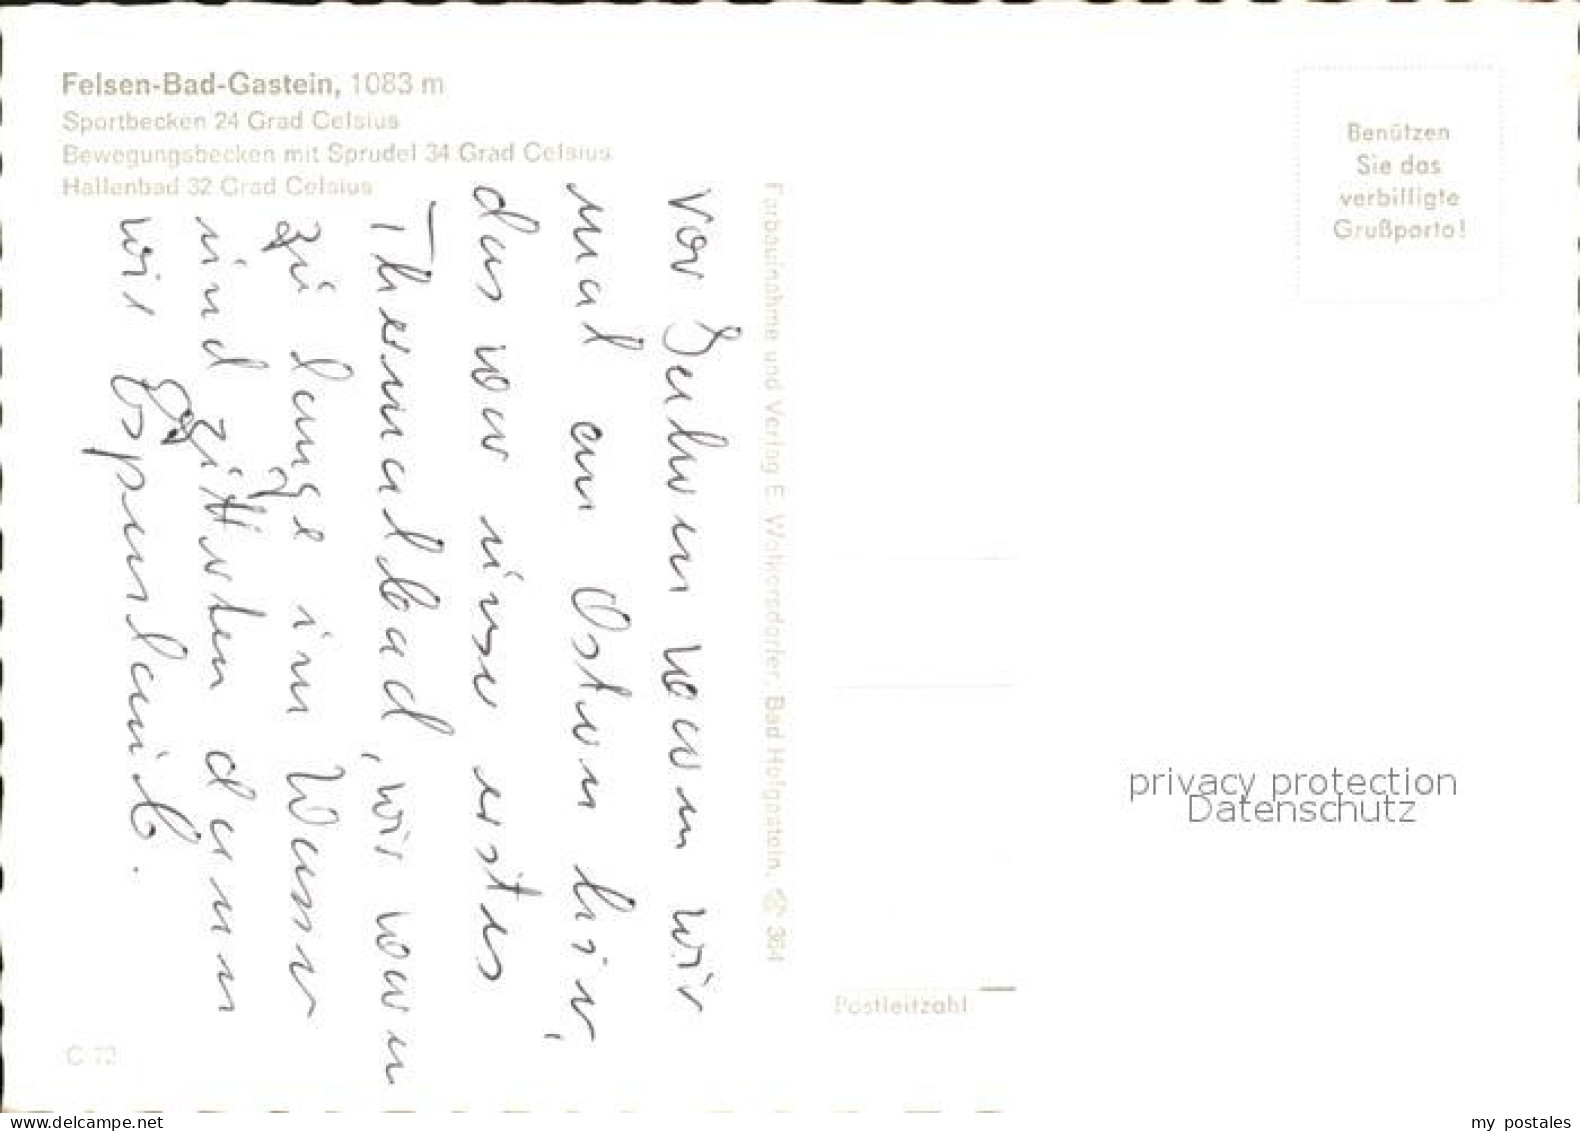 Felsen-Bad-Gastein, 1083 m
Sportbecken 24 Grad Celsius
Bewegungsbecken mit Sprudel 34 Grad Celsius
Hallenbad 32 Grad Celsius
Benützen
Sie das
verbilligte
Grußporto!
Vor Jahren waren wir
mal an Ostern hier,
das war unser erstes
Thermalbad, wir waren
zu lange im Wasser
und zitterten dann
wie Espenlaub.
Farbaufnahme und Verlag E. Wolkersdorfer, Bad Hofgastein, 364
privacy protection
Datenschutz
Postleitzahl
C 72
www.delcampe.net
my_postales